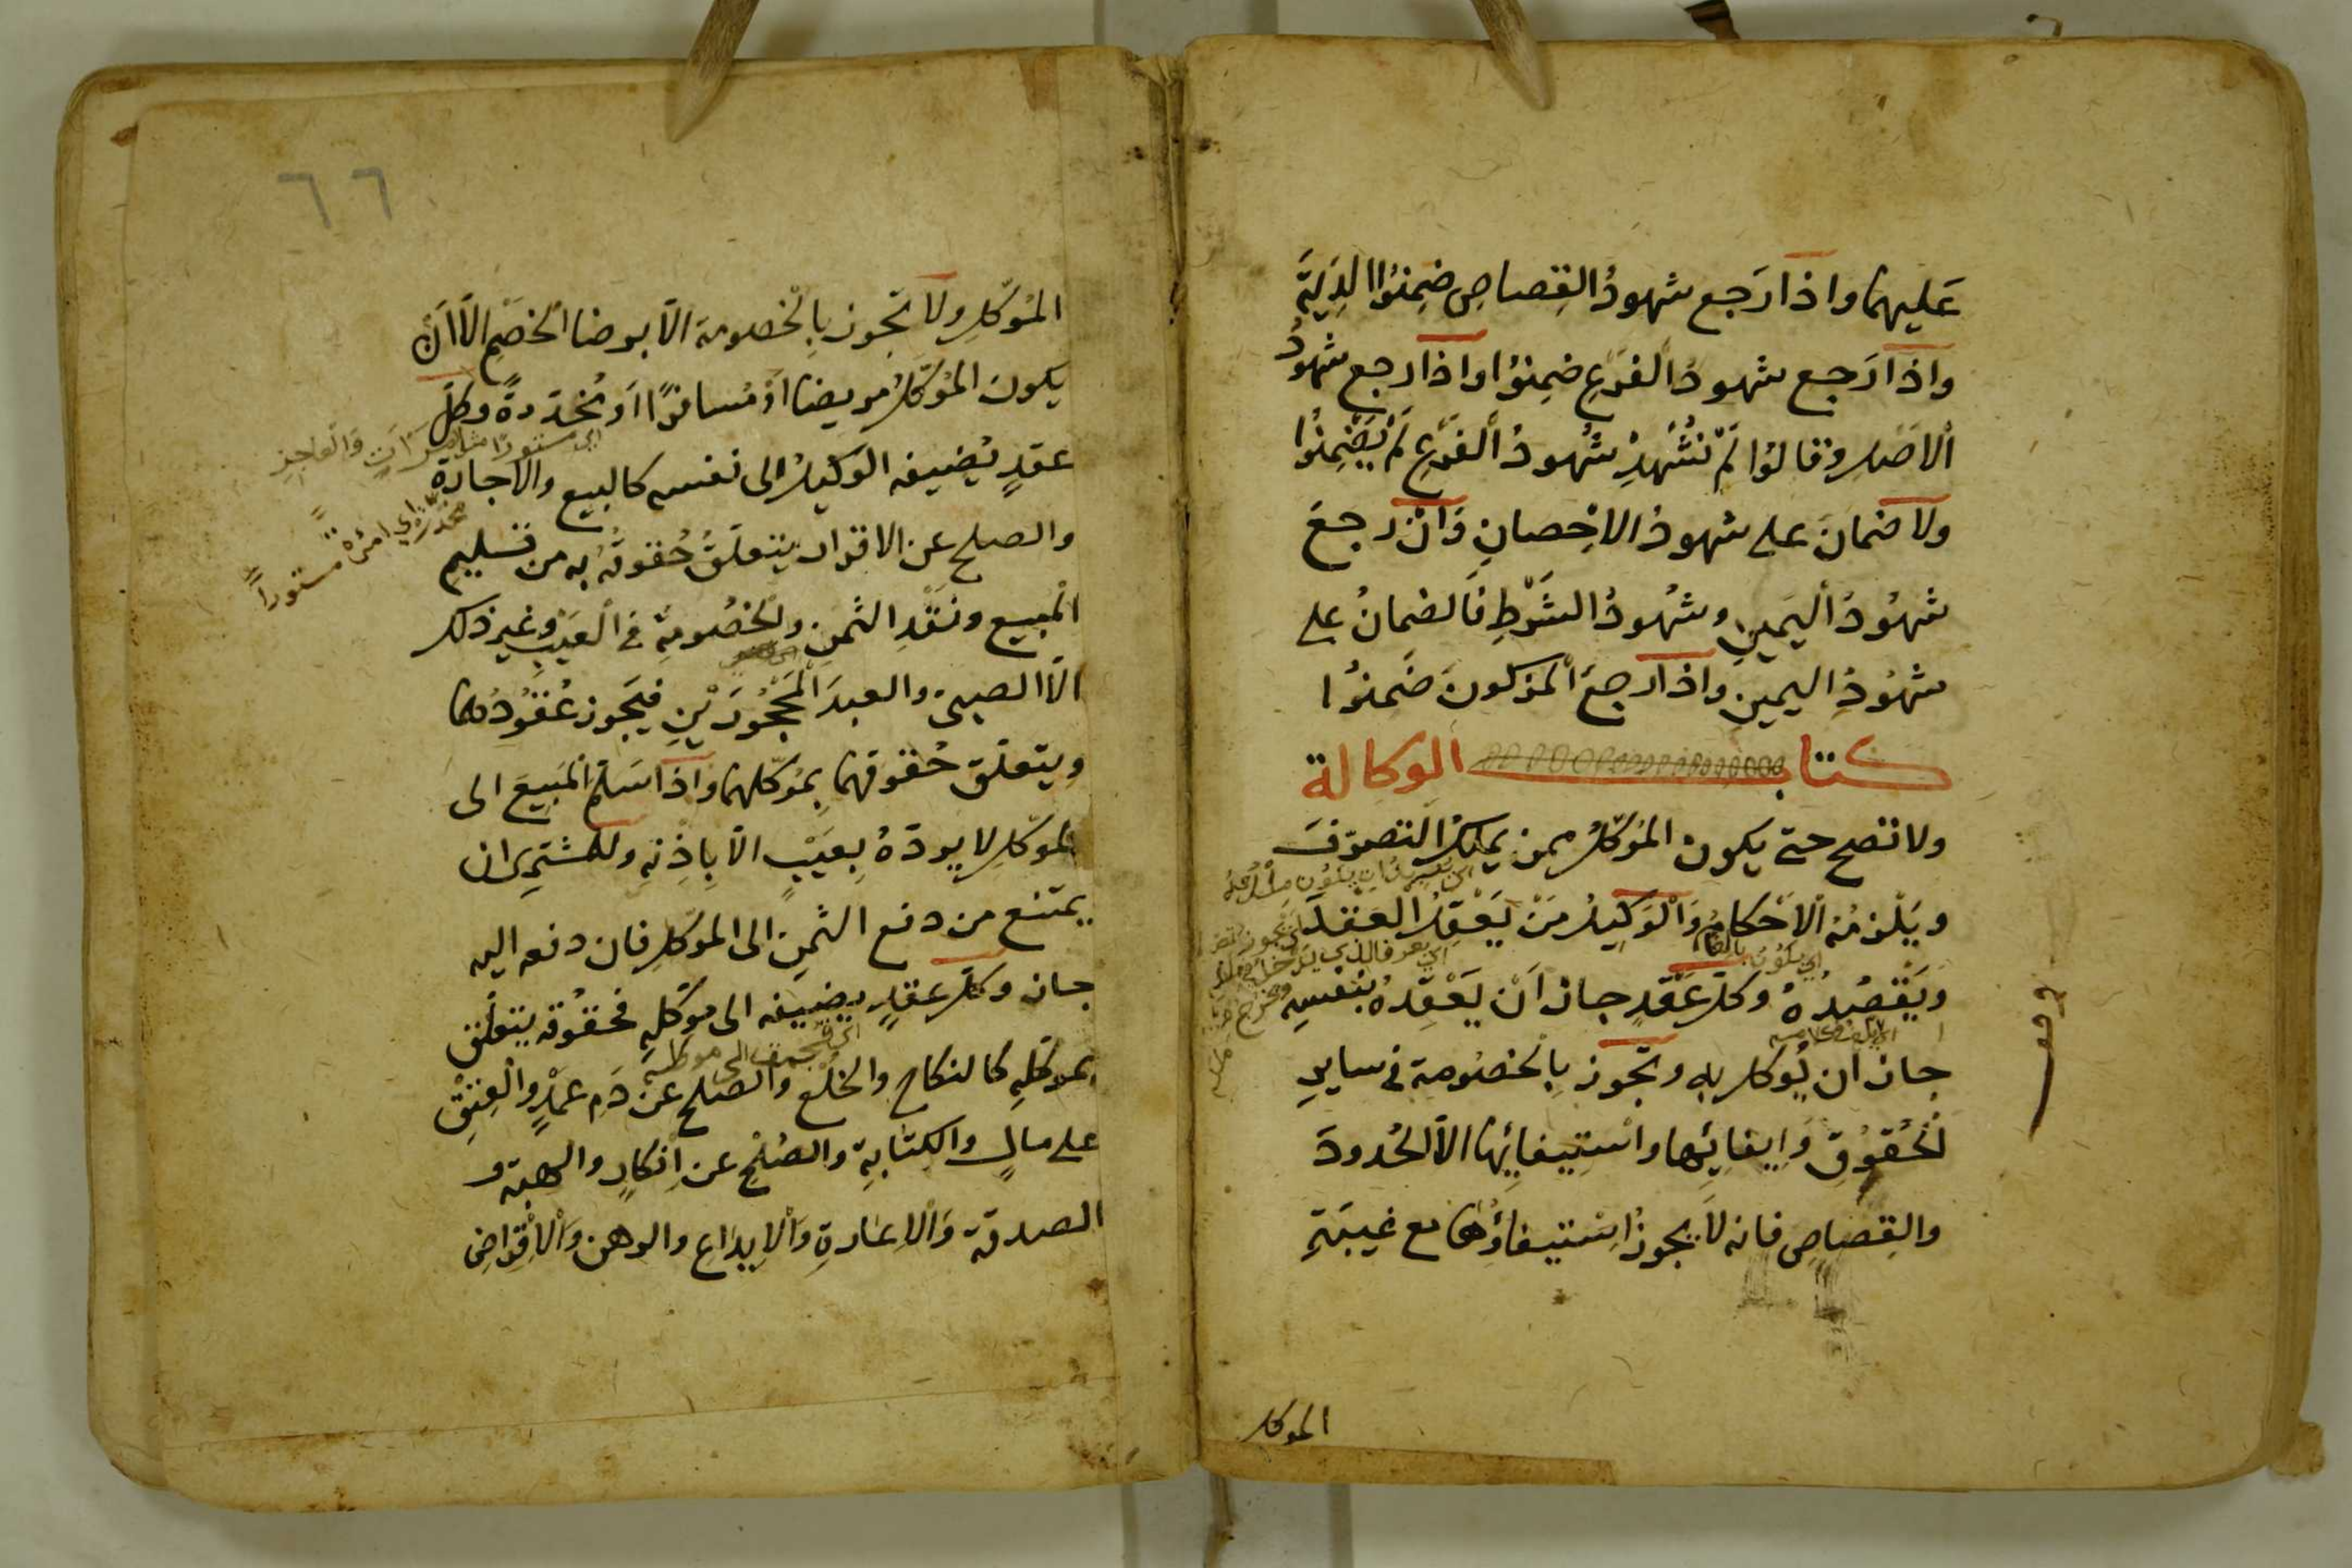 عَليهما واذا رَجع شهودُ القِصاصِ ضِمِنُوا الدِيَةَ
واذا رَجع شهودُ الفَرْعِ ضِمِنوُا واذا رجع شهودُ
ألاصْلِ وقالوُا لَمْ نُشْهِدْ شُهودُ ألفَرْعِ لَمْ يَضْمِنُوا
ولا ضمانَ على شهودُ الاحْصانِ وَانْ رجعَ
شهُودُ أليَمينِ وشهُودُ الشَرْطِ فَالضمانُ على
شهُودِ اليمينِ واذا رجعَ ألمزكونَ ضَمِنوُا
كتاب الوكالة
ولا تصح حتى يكون المُوَكّلُ ممن يملكُ التصرّفَ
ويَلْزمُهُ ألاَحْكامُ وَألوَكِيلُ مَنْ يَعْقِلُ العَقدَ
ويَقْصُدُهُ وكلّ عَقْدٍ جازَ اَنْ يَعْقِدَهُ بنفسِهِ
جازَ ان يُوكل به وتَجوز بِالخصُومة فى سايرِ
لحُقوُقِ وَإيفائِها واسْتِيفائِها الاّ الحُدودَ
والقِصاصِ فانه لاَ يجوزُ اسْتيفاؤُها مع غيبَةِ
الموكل
٦٦
المُوَكّلِ ولا تَجوز بِالخصومة الاّ برضا الخصْمِ الاّ اَنْ
يكونَ المُوَكّلُ مريضا اَوْ مُسافرًا اَو مُخدّرةً وكلّ
عقدٍ يُضِيفه الوَكيلُ الى نفسه كالبيع والاجارة
والصلح عن الاقرار يتعلّقُ حُقوقُهُ به من تسليم
المبيع ونَقْدِ الثمنِ والخصُومةِ فى العَيْبِ وغير ذلك
الاّ الصبىّ والعبدَ المَحْجُورَيْنِ فيَجوز عُقُودُهما
ويتعلّق حُقوقهما بِمُوَكّلهما واذا سَلم المَبِيعَ الى
الموكّلِ لا يردّهُ بِعَيْبٍ الاّ بِاِذْنِهِ وللمشتِرى ان
يمتنع من دفع الثمنِ الى الموكّلِ فان دفعه اليه
جاز وكلّ عقدٍ يضيفه الى مُوَكّلِهِ فحقوُقه يتعلّق
بموكّلِهِ كالنكاح والخُلْع والصلح عن دَمِ عَمْدٍ والعِتْقِ
على مالٍ والكِتابةِ والصُلْحِ عن اِنكارٍ والهبة و
الصدقة وَألاعارةِ وَألايداعِ والرهن وَألاِقْراضِ